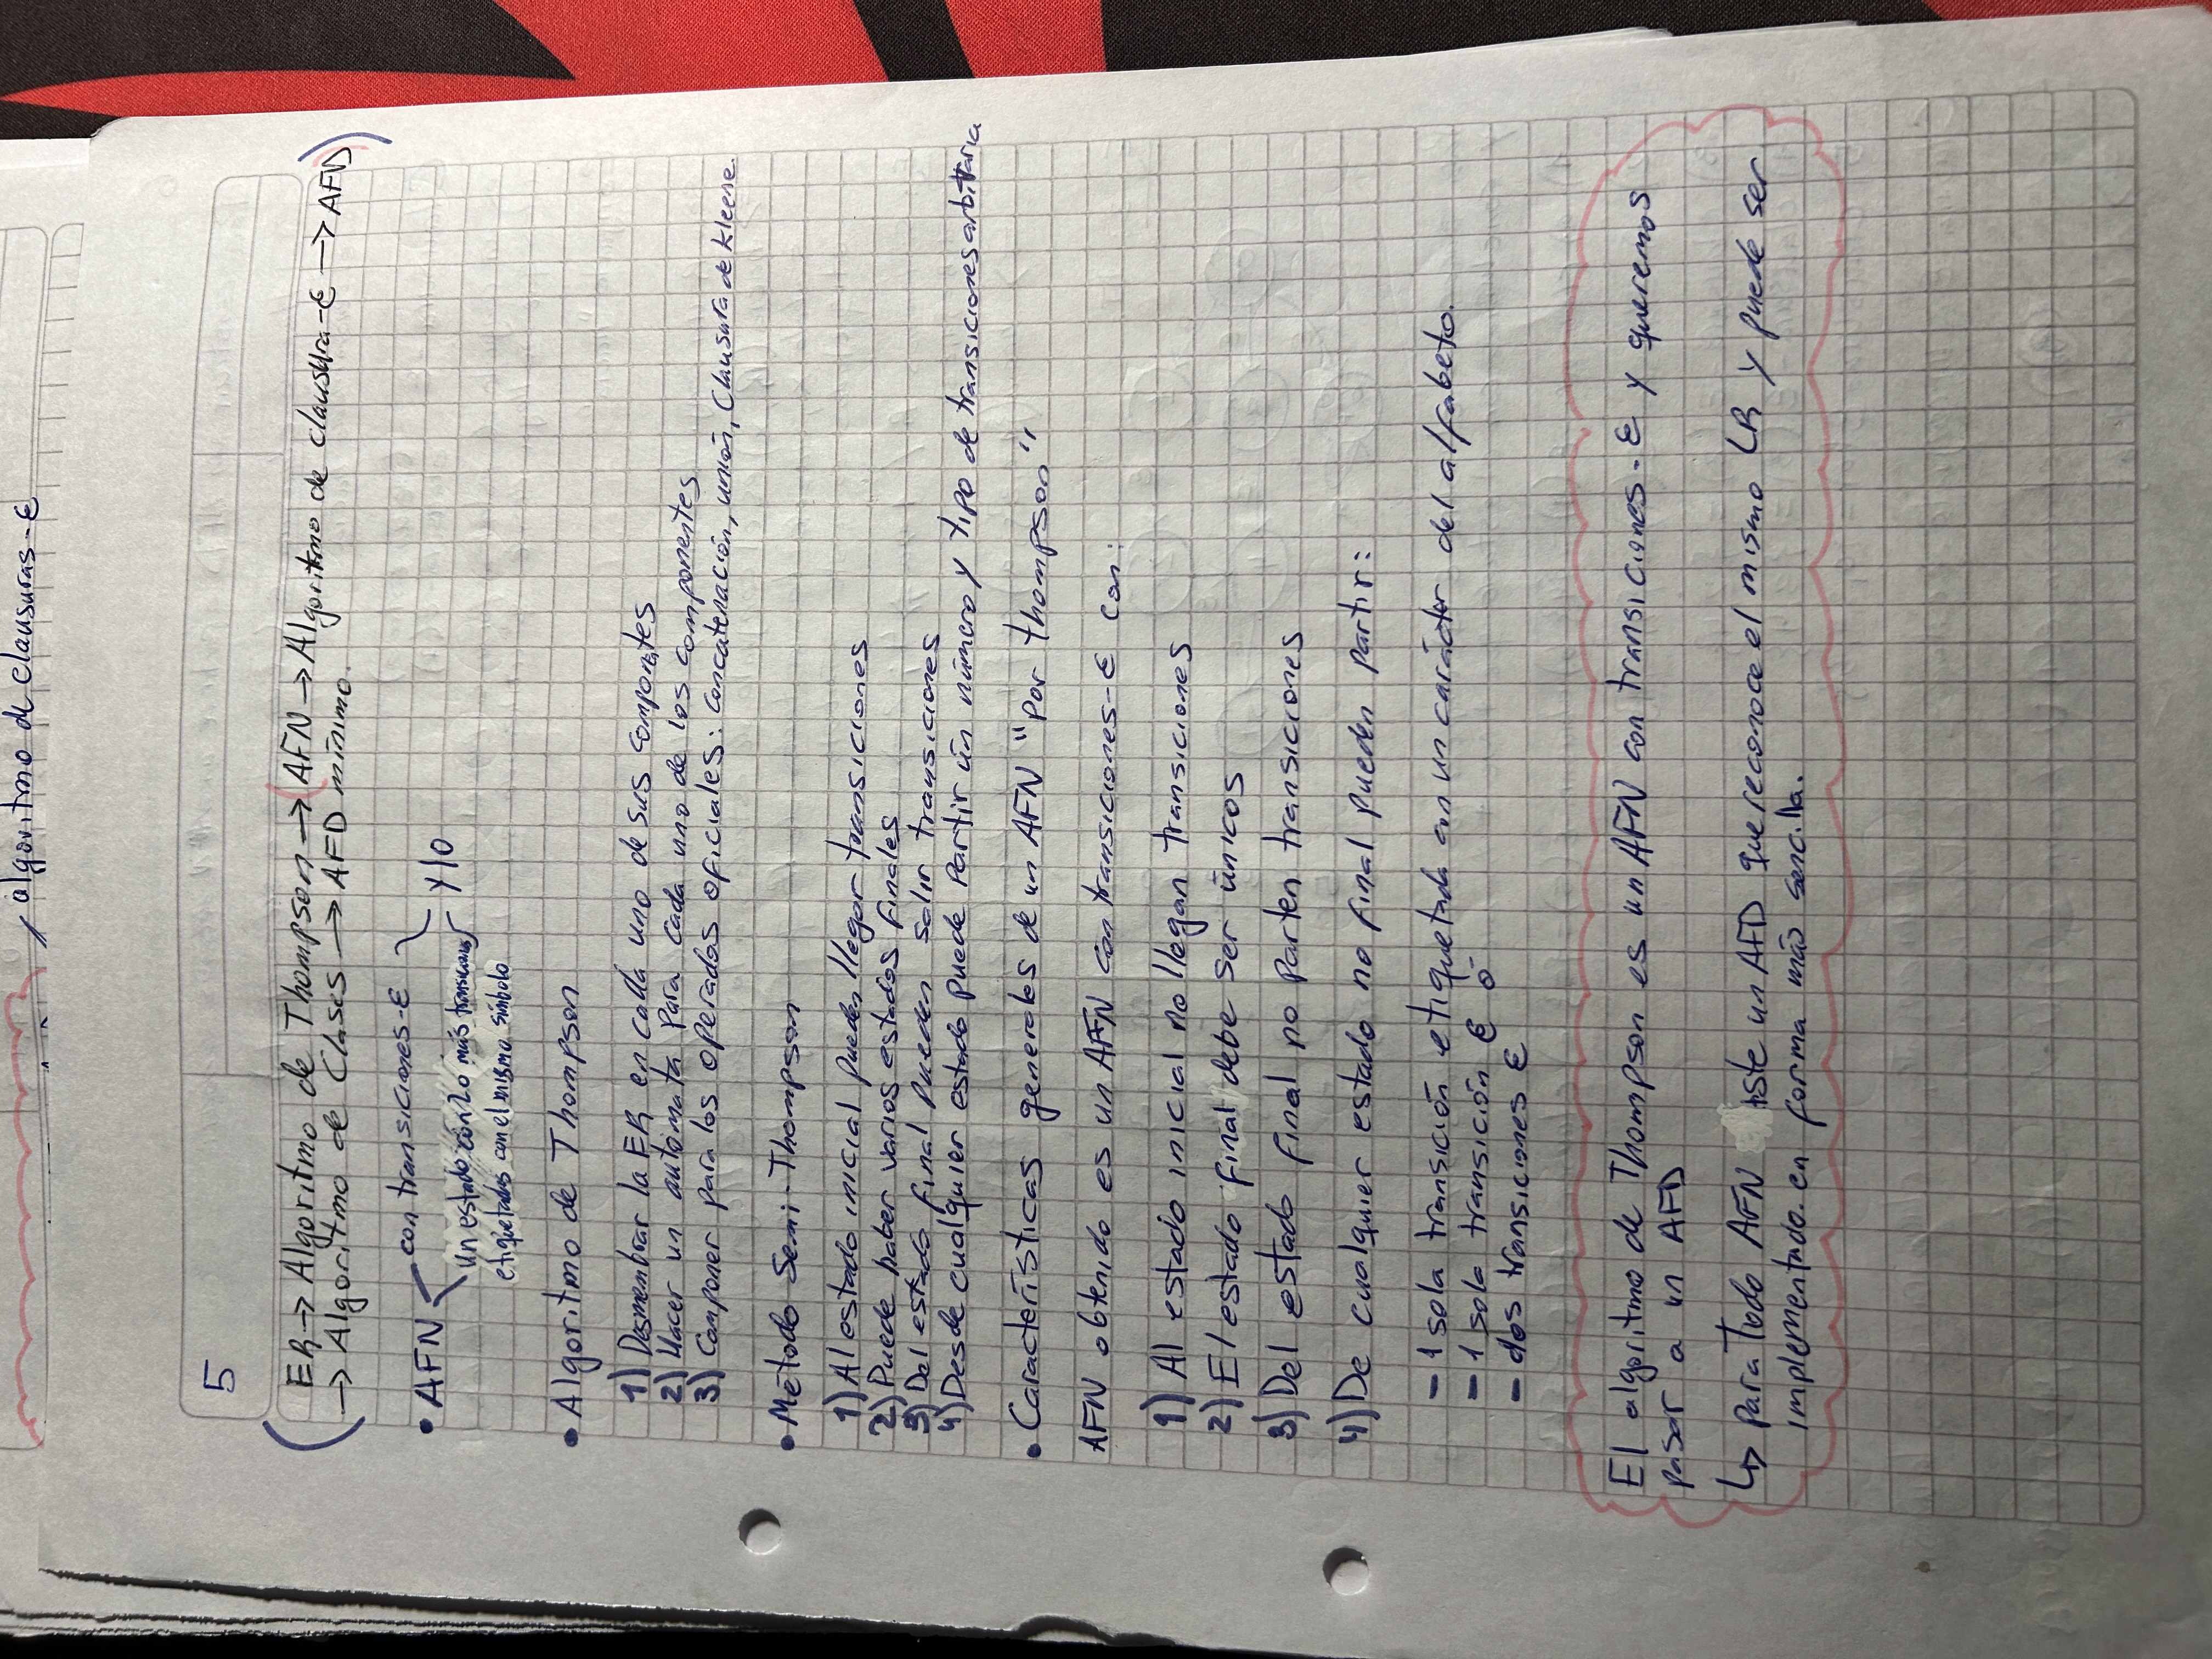 algoritmo de clausuras-ε
5
ER → Algoritmo de Thompson → (AFN → Algoritmo de clausura-ε → AFD)
→ Algoritmo de Clases → AFD mínimo.
• AFN con transiciones-ε
y/o
un estado con 2 o más transiciones
etiquetadas con el mismo símbolo
• Algoritmo de Thompson
1) Desmembrar la ER en cada uno de sus componentes
2) Hacer un autómata para cada uno de los componentes
3) Componer para los operados oficiales: concatenación, unión, Clausura de Kleene.
• Método Semi-Thompson
1) Al estado inicial pueden llegar transiciones
2) Puede haber varios estados finales
3) Del estado final pueden salir transiciones
4) Desde cualquier estado puede partir un número y tipo de transiciones arbitraria
• Características generales de un AFN "por thompson"
AFN obtenido es un AFN con transiciones-ε con:
1) Al estado inicial no llegan transiciones
2) El estado final debe ser únicos
3) Del estado final no parten transiciones
4) De cualquier estado no final pueden partir:
- 1 sola transición etiquetada con un carácter del alfabeto.
- 1 sola transición ε ó
- dos transiciones ε
El algoritmo de Thompson es un AFN con transiciones-ε y queremos
pasar a un AFD
↳ para Todo AFN iste un AFD que reconoce el mismo LR y puede ser
implementado en forma más sencilla.